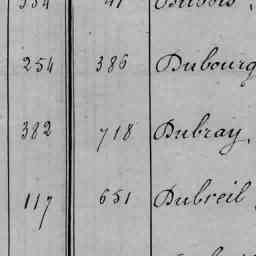 254 386 Dubourg
382 718 Dubray,
117 651 Dubreil